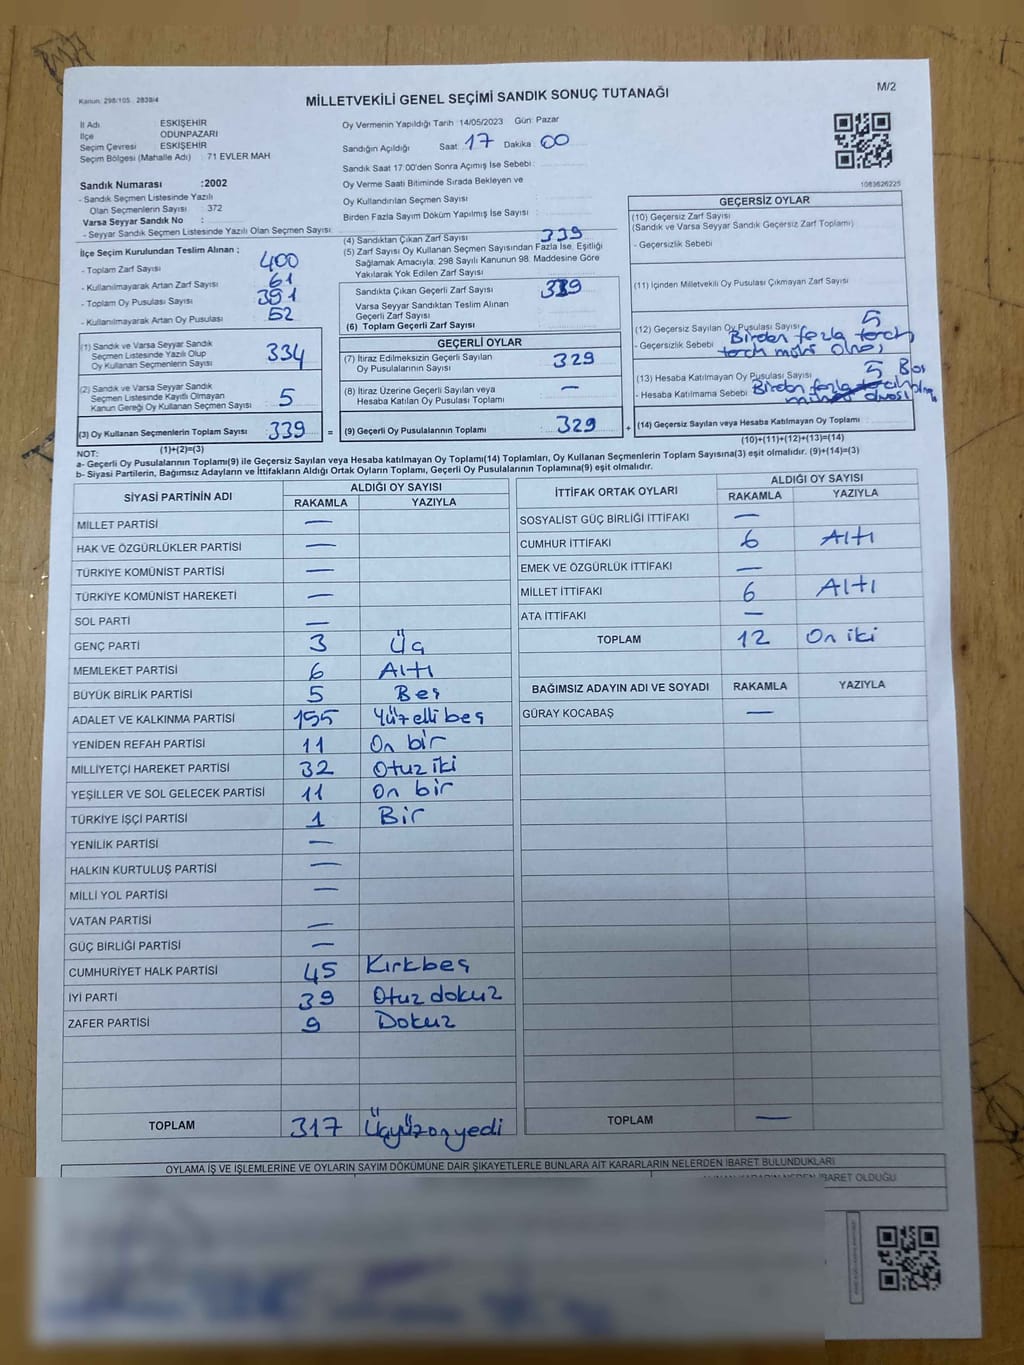 Kanun: 298/105 2839/4
MİLLETVEKİLİ GENEL SEÇİMİ SANDIK SONUÇ TUTANAĞI
M/2
İl Adı ESKİŞEHİR
İlçe ODUNPAZARI
Seçim Çevresi ESKİŞEHİR
Seçim Bölgesi (Mahalle Adı) : 71 EVLER MAH
Sandık Numarası :2002
- Sandık Seçmen Listesinde Yazılı
Olan Seçmenlerin Sayısı : 372
Varsa Seyyar Sandık No :
- Seyyar Sandık Seçmen Listesinde Yazılı Olan Seçmen Sayısı:
Oy Vermenin Yapıldığı Tarih 14/05/2023 Gün: Pazar
Sandığın Açıldığı Saat 17 Dakika 00
Sandık Saat 17 00'den Sonra Açımış İse Sebebi :
Oy Verme Saati Bitiminde Sırada Bekleyen ve
Oy Kullandırılan Seçmen Sayısı :
Birden Fazla Sayım Döküm Yapılmış İse Sayısı :
1083626225
İlçe Seçim Kurulundan Teslim Alınan ;
- Toplam Zarf Sayısı 400
- Kullanılmayarak Artan Zarf Sayısı 61
- Toplam Oy Pusulası Sayısı 391
- Kullanılmayarak Artan Oy Pusulası 52
(1) Sandık ve Varsa Seyyar Sandık
Seçmen Listesinde Yazılı Olup
Oy Kullanan Seçmenlerin Sayısı 334
(2) Sandık ve Varsa Seyyar Sandık
Seçmen Listesinde Kayıtlı Olmayan
Kanun Gereği Oy Kullanan Seçmen Sayısı 5
(3) Oy Kullanan Seçmenlerin Toplam Sayısı 339 =
(1)+(2)=(3)
(4) Sandıktan Çıkan Zarf Sayısı 339
(5) Zarf Sayısı Oy Kullanan Seçmen Sayısından Fazla İse, Eşitliği
Sağlamak Amacıyla, 298 Sayılı Kanunun 98. Maddesine Göre
Yakılarak Yok Edilen Zarf Sayısı
Sandıkta Çıkan Geçerli Zarf Sayısı 339
Varsa Seyyar Sandıktan Teslim Alınan
Geçerli Zarf Sayısı
(6) Toplam Geçerli Zarf Sayısı
GEÇERLİ OYLAR
(7) İtiraz Edilmeksizin Geçerli Sayılan
Oy Pusulalarının Sayısı 329
(8) İtiraz Üzerine Geçerli Sayılan veya
Hesaba Katılan Oy Pusulası Toplamı : —
(9) Geçerli Oy Pusulalarının Toplamı : 329 +
GEÇERSİZ OYLAR
(10) Geçersiz Zarf Sayısı
(Sandık ve Varsa Seyyar Sandık Geçersiz Zarf Toplamı)
- Geçersizlik Sebebi :
(11) İçinden Milletvekili Oy Pusulası Çıkmayan Zarf Sayısı
(12) Geçersiz Sayılan Oy Pusulası Sayısı 5
- Geçersizlik Sebebi : Birden fazla
(13) Hesaba Katılmayan Oy Pusulası Sayısı 5 Boş
- Hesaba Katılmama Sebebi Birden fazla
(14) Geçersiz Sayılan veya Hesaba Katılmayan Oy Toplamı :
(10)+(11)+(12)+(13)=(14)
NOT:
a- Geçerli Oy Pusulalarının Toplamı(9) ile Geçersiz Sayılan veya Hesaba katılmayan Oy Toplamı(14) Toplamları, Oy Kullanan Seçmenlerin Toplam Sayısına(3) eşit olmalıdır. (9)+(14)=(3)
b- Siyasi Partilerin, Bağımsız Adayların ve İttifakların Aldığı Ortak Oyların Toplamı, Geçerli Oy Pusulalarının Toplamına(9) eşit olmalıdır.
SİYASİ PARTİNİN ADI ALDIĞI OY SAYISI
RAKAMLA YAZIYLA
MİLLET PARTİSİ —
HAK VE ÖZGÜRLÜKLER PARTİSİ —
TÜRKİYE KOMÜNİST PARTİSİ —
TÜRKİYE KOMÜNİST HAREKETİ —
SOL PARTİ —
GENÇ PARTİ 3 Üç
MEMLEKET PARTİSİ 6 Altı
BÜYÜK BİRLİK PARTİSİ 5 Beş
ADALET VE KALKINMA PARTİSİ 155 Yüzelli beş
YENİDEN REFAH PARTİSİ 11 On bir
MİLLİYETÇİ HAREKET PARTİSİ 32 Otuz iki
YEŞİLLER VE SOL GELECEK PARTİSİ 11 On bir
TÜRKİYE İŞÇİ PARTİSİ 1 Bir
YENİLİK PARTİSİ —
HALKIN KURTULUŞ PARTİSİ —
MİLLİ YOL PARTİSİ —
VATAN PARTİSİ —
GÜÇ BİRLİĞİ PARTİSİ —
CUMHURİYET HALK PARTİSİ 45 Kırkbeş
İYİ PARTİ 39 Otuz dokuz
ZAFER PARTİSİ 9 Dokuz
TOPLAM 317 Üçyüzonyedi
İTTİFAK ORTAK OYLARI ALDIĞI OY SAYISI
RAKAMLA YAZIYLA
SOSYALİST GÜÇ BİRLİĞİ İTTİFAKI —
CUMHUR İTTİFAKI 6 Altı
EMEK VE ÖZGÜRLÜK İTTİFAKI —
MİLLET İTTİFAKI 6 Altı
ATA İTTİFAKI —
TOPLAM 12 On iki
BAĞIMSIZ ADAYIN ADI VE SOYADI RAKAMLA YAZIYLA
GÜRAY KOCABAŞ —
TOPLAM —
OYLAMA İŞ VE İŞLEMLERİNE VE OYLARIN SAYIM DÖKÜMÜNE DAİR ŞİKAYETLERLE BUNLARA AİT KARARLARIN NELERDEN İBARET BULUNDUKLARI
İBARET OLDUĞU